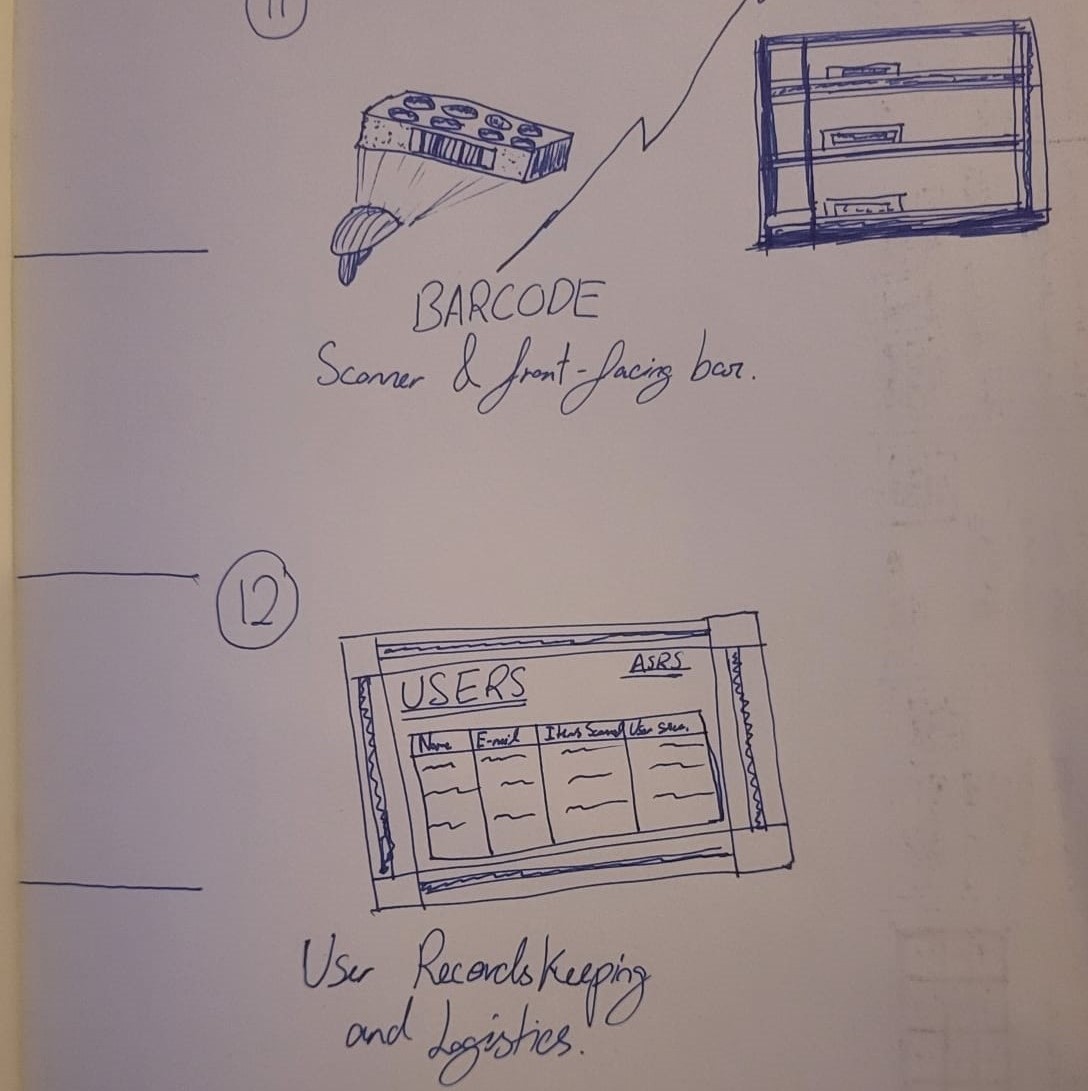 11
BARCODE
Scanner & front-facing bar.
12
USERS
ASRS
Name E-mail Items Scanned User
User Records Keeping
and Logistics.